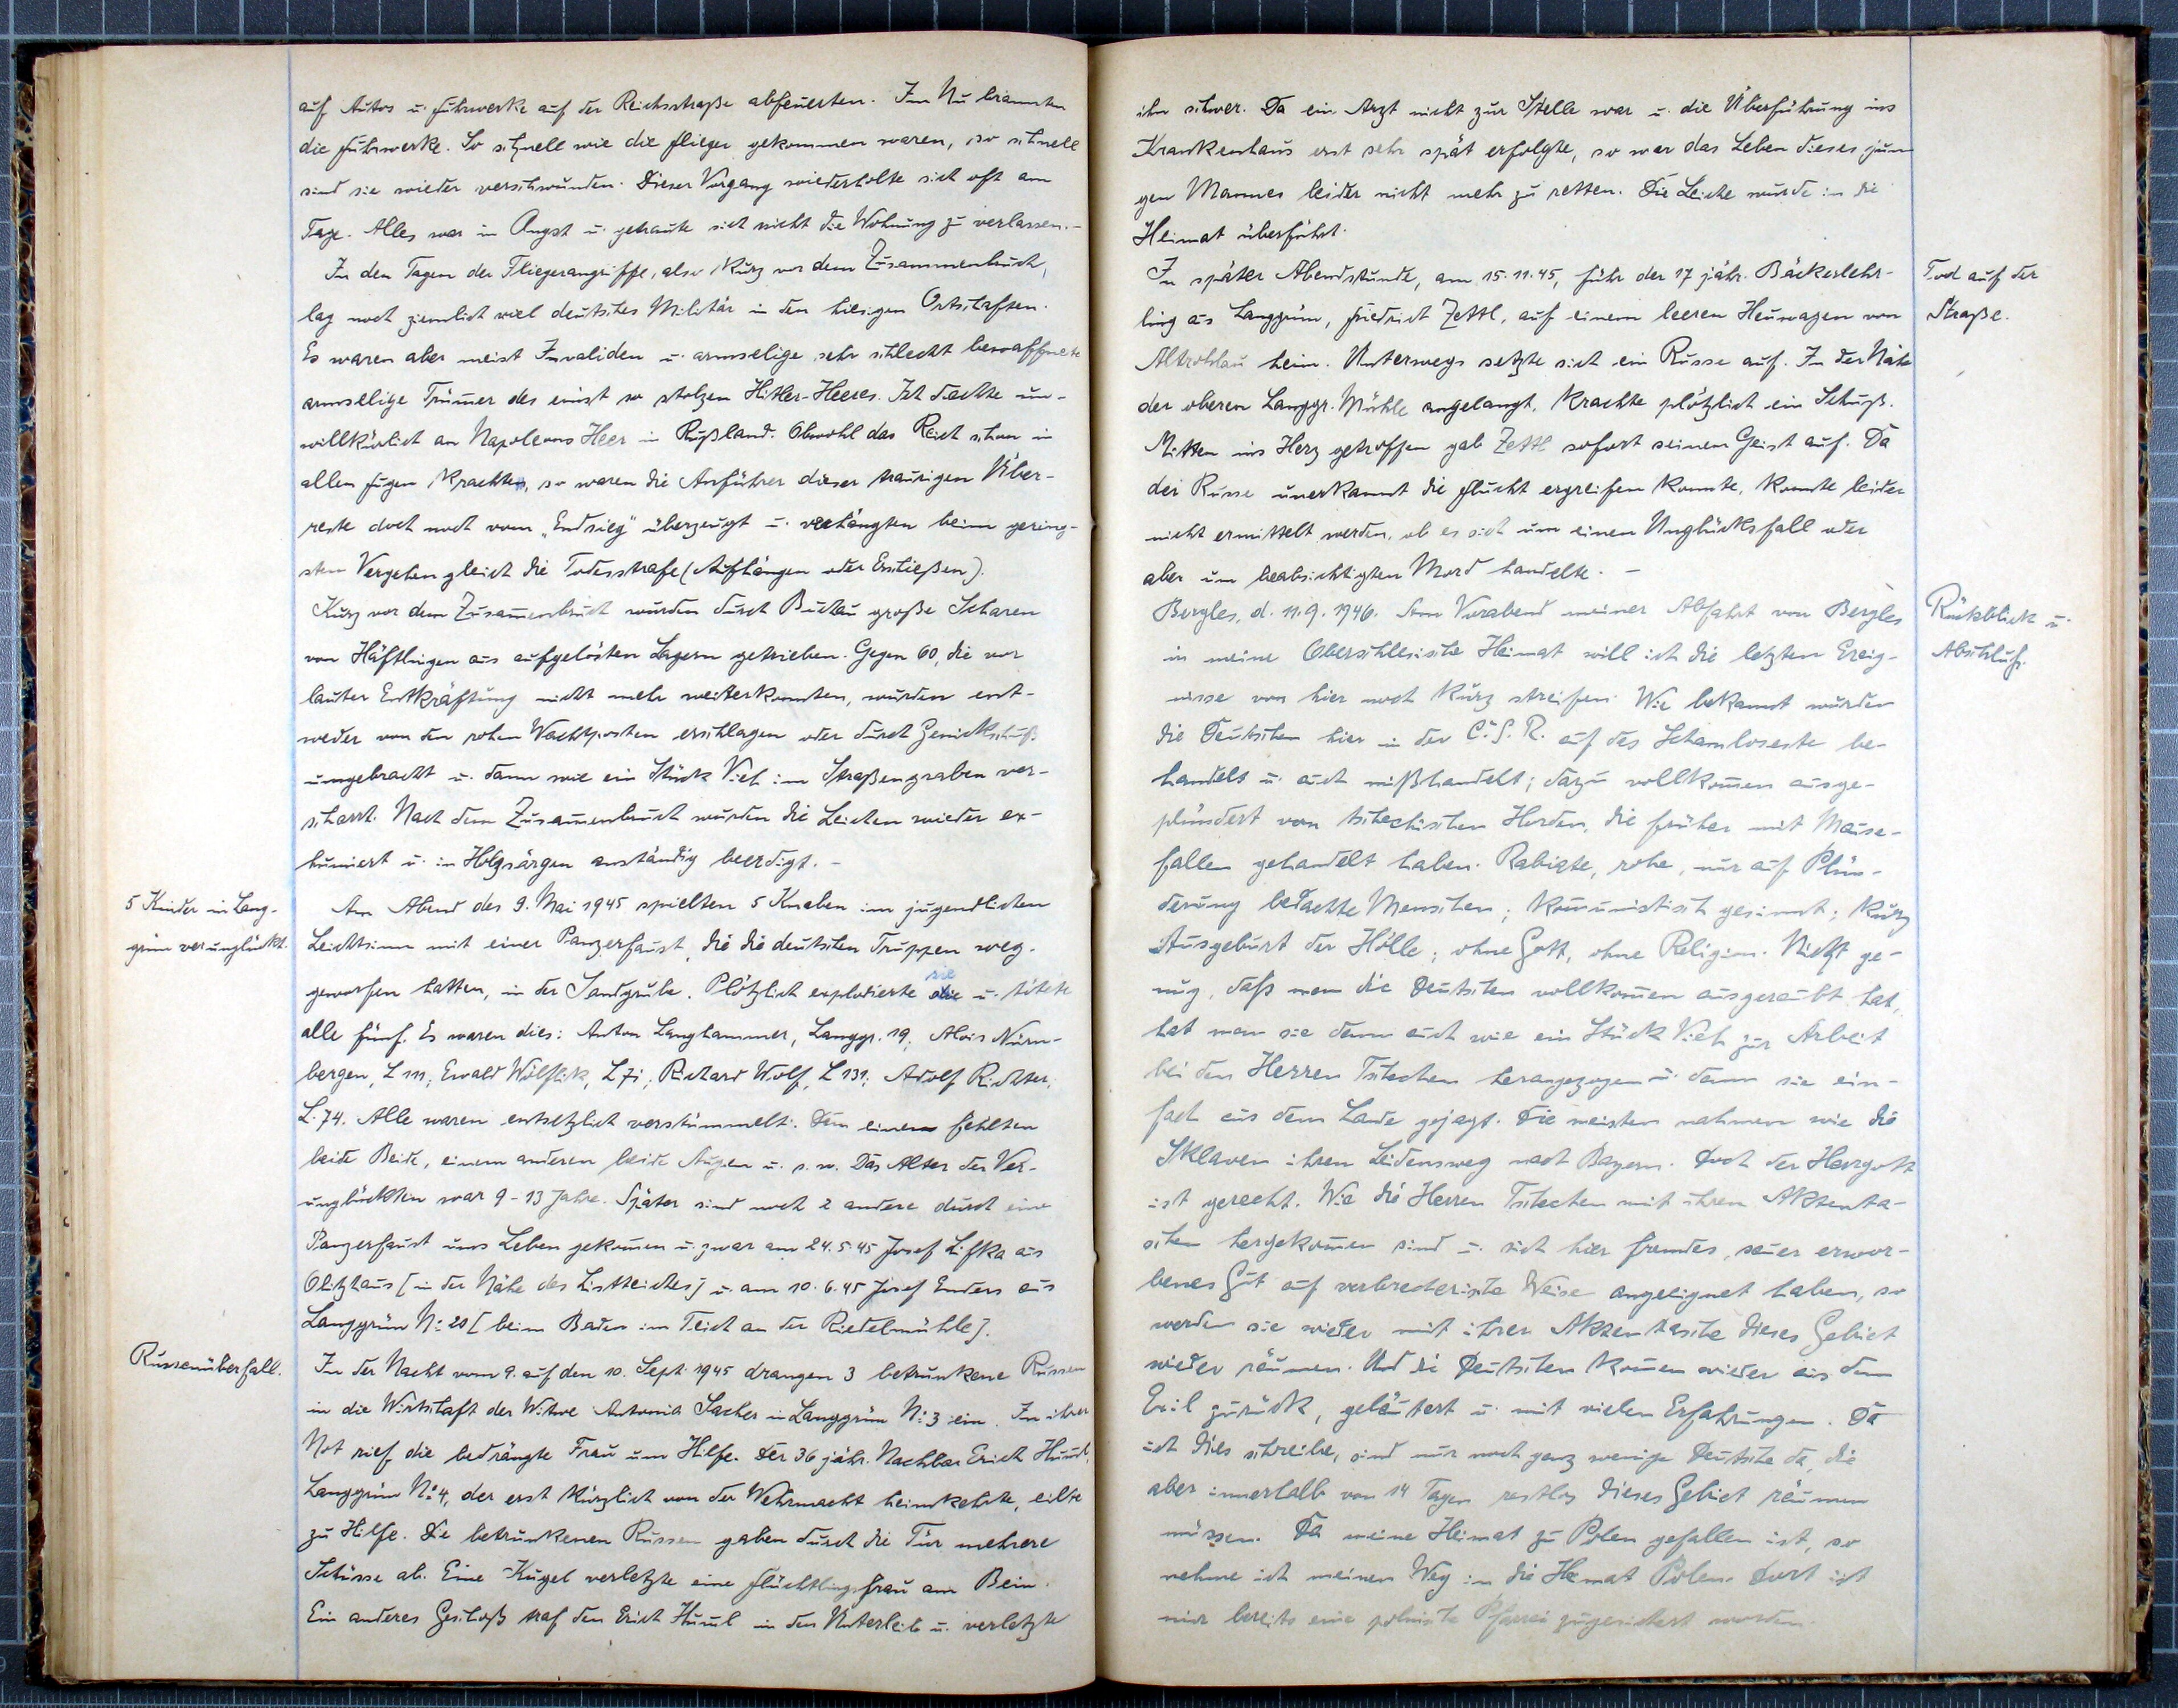 auf Autos u. Fuhrwerke auf der Reichsstraße abfeuerten. Im Nu brannten
die Fuhrwerke. So schnell wie die Flieger gekommen waren, so schnell
sind sie wieder verschwunden. Dieser Vorgang wiederholte sich oft am
Tage. Alles war in Angst u. getraute sich nicht die Wohnung zu verlassen. –
In den Tagen der Fliegerangriffe, also kurz vor dem Zusammenbruch,
lag noch ziemlich viel deutsches Militär in den hiesigen Ortschaften.
Es waren aber meist Invaliden u. armselige, sehr schlecht bewaffnete
armselige Trümer des einst so stolzen Hitler-Heeres. Ich dachte un-
willkürlich an Napoleons Heer in Rußland. Obwohl das Reich schon in
allen Fugen krachte, so waren die Anführer dieser traurigen Über-
reste doch noch vom „Endsieg" überzeugt u. verhängten beim gering-
sten Vergehen gleich die Todesstrafe (Aufhängen oder Erschießen).
Kurz vor dem Zusamenbruch wurden durch Buchau große Scharen
von Häftlingen aus aufgelösten Lagern getrieben. Gegen 60, die vor
lauter Entkräftung nicht mehr weiterkonnten, wurden ent-
weder von den rohen Wachtposten erschlagen oder durch Genickschuß
umgebracht u. dann wie ein Stück Vieh im Straßengraben ver-
scharrt. Nach dem Zusamenbruch wurden die Leichen wieder ex-
humiert u. in Holzsärgen anständig beerdigt. –
5 Kinder in Lang-
grün verunglückt.
Am Abend des 9. Mai 1945 spielten 5 Knaben im jugendlichen
Leichtsinn mit einer Panzerfaust, die die deutschen Truppen weg-
geworfen hatten, in der Sandgrube. Plötzlich explodierte sie u. tötete
alle fünf. Es waren dies: Anton Langhammer, Langgr. 19; Alois Nürn-
bergen, L 111; Ewald Wölflick, L 71; Richard Wolf, L 131; Adolf Richter,
L. 74. Alle waren entsetzlich verstümmelt: Dem einem fehlten
beide Beide, einem anderen beide Augen u. s. w. Das Alter der Ver-
unglückten war 9–13 Jahre. Später sind noch 2 andere durch eine
Panzerfaust ums Leben gekomen u. zwar am 24.5.45 Josef Lifka aus
Olitzhaus [in der Nähe des Listteiches] u. am 10.6.45 Josef Enders aus
Langgrün No 20 [beim Baden im Teich an der Riedelmühle].
Russenüberfall.
In der Nacht vom 9. auf den 10. Sept. 1945 drangen 3 betrunkene Russen
in die Wirtschaft der Witwe Antonia Sacher in Langgrün No 3 ein. In ihrer
Not rief die bedrängte Frau um Hilfe. Der 36 jähr. Nachbar Erich Huml,
Langgrün No 4, der erst kürzlich von der Wehrmacht heimkehrte, eilte
zu Hilfe. Die betrunkenen Russen gaben durch die Tür mehrere
Schüsse ab. Eine Kugel verletzte eine Flüchtlingsfrau am Bein.
Ein anderes Geschoß traf den Erich Huml in den Unterleib u. verletzte
ihn schwer. Da ein Arzt nicht zur Stelle war u. die Überführung ins
Krankenhaus erst sehr spät erfolgte, so war das Leben dieses jun
gen Mannes leider nicht mehr zu retten. Die Leiche wurde in die
Heimat überführt.
Tod auf der
Straße.
In später Abendstunde, am 15.11.45, fuhr der 17 jähr. Bäckerlehr-
ling aus Langgrün, Friedrich Zettl, auf einem leeren Heuwagen von
Altrohlau heim. Unterwegs setzte sich ein Russe auf. In der Nähe
der oberen Langgr. Mühle angelangt, krachte plötzlich ein Schuß.
Mitten ins Herz getroffen gab Zettl sofort seinen Geist auf. Da
der Russe unerkannt die Flucht ergreifen konnte, konnte leider
nicht ermittelt werden, ob es sich um einen Unglücksfall oder
aber um beabsichtigten Mord handelte. –
Rückblick u.
Abschluß.
Bergles, d. 11.9.1946. Am Vorabend meiner Abfahrt von Bergles
in meine Oberschlesische Heimat will ich die letzten Ereig-
nisse von hier noch kurz streifen. Wie bekannt wurden
die Deutschen hier in der Č.S.R. auf das Schamloseste be-
handelt u. auch mißhandelt; dazu vollkomen ausge-
plündert von tschechischen Horden, die früher mit Mause-
fallen gehandelt haben. Rabiate, rohe, nur auf Plün-
derung bedachte Menschen; komunistisch gesinnt; kurz
Ausgeburt der Hölle; ohne Gott, ohne Religion. Nicht ge-
nug, daß man die Deutschen vollkomen ausgeraubt hat,
hat man sie dann auch wie ein Stück Vieh zur Arbeit
bei den Herren Tschechen herangezogen u. dann sie ein-
fach aus dem Lande gejagt. Die meisten nahmen wie die
Sklaven ihren Leidensweg nach Bayern. Doch der Herrgott
ist gerecht. Wie die Herren Tschechen mit ihren Aktenta-
schen hergekomen sind u. sich hier fremdes, sauer erwor-
benes Gut auf verbrecherische Weise angeeignet haben, so
werden sie wieder mit ihrer Aktentasche dieses Gebiet
wieder räumen. Und die Deutschen komen wieder aus dem
Exil zurück, geläutert u. mit vielen Erfahrungen. Da
ich dies schreibe, sind nur noch ganz wenige Deutsche da, die
aber innerhalb von 14 Tagen restlos dieses Gebiet räumen
müssen. Da meine Heimat zu Polen gefallen ist, so
nehme ich meinen Weg in die Heimat Polen. Dort ist
mir bereits eine polnische Pfarrei zugesichert worden.